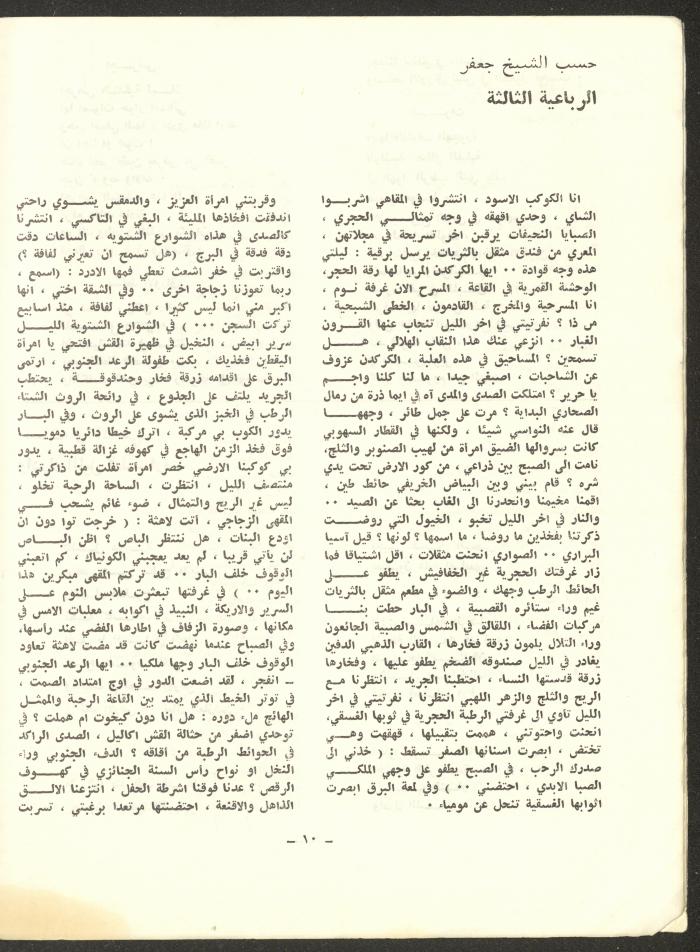 حسب الشيخ جعفر
الرباعية الثالثة
انا الكوكب الاسود ، انتشروا في المقاهي اشربـــوا
الشاي ، وحدي اقهقه في وجه تمثالـــي الحجري ،
الصبايا النحيفات يرقبن اخر تسريحة في مجلاتهن ،
المعري من فندق مثقل بالثريات يرسل برقية : ليلتي
هذه وجه قوادة ٠٠ ايها الكركدن المرايا لها رقة الحجر،
الوحشة القمرية في القاعة ، المسرح الان غرفة نـوم ،
انا المسرحية والمخرج ، القادمون ، الخطى الشبحية ،
من ذا ؟ نفرتيتي في اخر الليل تنجاب عنها القـــرون
الغبار ٠٠ انزعي عنك هذا النقاب الهلالي ، هـــل
تسمحين ؟ المساحيق في هذه العلبة ، الكركدن عزوف
عن الشاحبات ، اصبغي جيدا ، ما لنا كلنا واجـــم
يا حرير ؟ امتلكت الصدى والمدى آه في ايما ذرة من رمال
الصحاري البداية ؟ مرت على جمل طائر ، وجههـــا
قال عنه النواسي شيئا ، ولكنها في القطار السهوبي
كانت بسروالها الضيق امرأة من لهيب الصنوبر والثلج،
نامت الى الصبح بين ذراعي ، من كور الارض تحت يدي
شره ؟ قام بيني وبين البياض الخريفي حائط طين ،
اقمنا مخيمنا وانحدرنا الى الغاب بحثا عن الصيد ٠٠
والنار في اخر الليل تخبو ، الخيول التي روضـــت
ذكرتنا بفخذين ما روضا ، ما اسمها ؟ لونها ؟ قيل آسيا
البراري ٠٠ الصواري انحنت مثقلات ، اقل اشتياقا فما
زار غرفتك الحجرية غير الخفافيش ، يطفو علـــى
الحائط الرطب وجهك ، والضوء في مطعم مثقل بالثريات
غيم وراء ستائره القصبية ، في البار حطت بنـــا
مركبات الفضاء ، اللقالق في الشمس والصبية الجائعون
وراء التلال يلمون زرقة فخارها ، القارب الذهبي الدفين
يغادر في الليل صندوقه الضخم يطفو عليها ، وفخارها
زرقة قدستها النساء ، احتطبنا الجريد ، انتظرنا مـع
الريح والثلج والزهر اللهبي انتظرنا ، نفرتيتي في اخر
الليل تأوي الى غرفتي الرطبة الحجرية في ثوبها الفسقي،
انحنت واحتوتني ، هممت بتقبيلها ، قهقهت وهـــي
تختض ، ابصرت اسنانها الصفر تسقط : ( خذني الى
صدرك الرحب ، في الصبح يطفو على وجهي الملكـــي
الصبا الابدي ، احتضني ٠٠ ) وفي لمعة البرق ابصرت
اثوابها الفسقية تنحل عن مومياء ٠
وقربتني امرأة العزيز ، والدمقس يشـــوي راحتي
اندفقت افخاذها المليئة ، البغي في التاكسي ، انتشرنا
كالصدى في هذه الشوارع الشتويه ، الساعات دقت
دقة فدقة في البرج ، (هل تسمح ان تعيرني لفافة ؟)
واقتربت في خفر اشعث تعطي فمها الادرد : (اسمع ،
ربما تعوزنا زجاجة اخرى ٠٠ وفي الشقة اختي ، انها
اكبر مني انما ليس كثيرا ، اعطني لفافة ، منذ اسابيع
تركت السجن ٠٠٠ ) في الشوارع الشتوية الليـــل
سرير ابيض ، النخيل في ظهيرة القش افتحي يا امرأة
اليقطين فخذيك ، بكت طفولة الرعد الجنوبي ، ارتمى
البرق على اقدامه زرقة فخار وحندقوقـــة ، يحتطب
الجريد يلتف على الجذوع ، في رائحة الروث الشتاء
الرطب في الخبز الذي يشوى على الروث ، وفي البـار
يدور الكوب بي مركبة ، اترك خيطا دائريا دمويـــا
فوق فخذ الزمن الهاجع في كهوفه غزالة قطبية ، يدور
بي كوكبنا الارضي خصر امرأة تفلت من ذاكرتي :
منتصف الليل ، انتظرت ، الساحة الرحبة تخلو ،
ليس غير الريح والتمثال ، ضوء غائم يشحب فـــي
المقهى الزجاجي ، أتت لاهثة : ( خرجت توا دون ان
اودع البنات ، هل ننتظر الباص ؟ اظن البـــاص
لن يأتي قريبا ، لم يعد يعجبني الكونياك ، كم اتعبني
الوقوف خلف البار ٠٠ قد تركتم المقهى مبكرين هذا
اليوم ٠٠ ) في غرفتها تبعثرت ملابس النوم علـــى
السرير والاريكة ، النبيذ في اكوابه ، معلبات الامس في
مكانها ، وصورة الزفاف في اطارها الفضي عند رأسها،
وفي الصباح عندما نهضت كانت قد مضت لاهثة تعاود
الوقوف خلف البار وجها ملكيا ٠٠ ايها الرعد الجنوبي
ــ انفجر ، لقد اضعت الدور في اوج امتداد الصمت ،
في توتر الخيط الذي يمتد بين القاعة الرحبة والممثـل
الهائج ملء دوره : هل انا دون كيخوت ام هملت ؟ في
توحدي اضفر من حثالة القش اكاليل ، الصدى الراكد
في الحوائط الرطبة من اقلقه ؟ الدفء الجنوبي وراء
النخل او نواح رأس السنة الجنائزي في كهـــوف
الرقص ؟ عدنا فوقنا اشرطة الحفل ، انتزعنا الالـــق
الذاهل والاقنعة ، احتضنتها مرتعدا برغبتي ، تسربت
ــ ١٠ ــ